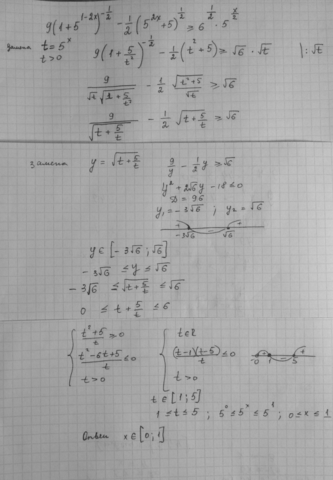 9(1+5^{1-2x})^{-\frac{1}{2}} - \frac{1}{2}(5^{2x}+5)^{\frac{1}{2}} ≥ 6^{\frac{1}{2}} · 5^{\frac{x}{2}}
замена t = 5^x 9(1+\frac{5}{t^2})^{-\frac{1}{2}} - \frac{1}{2}(t^2+5) ≥ √6 · √t |:√t
t>0
\frac{9}{√t √{1+\frac{5}{t^2}}} - \frac{1}{2} \frac{√{t^2+5}}{√t} ≥ √6
\frac{9}{√{t+\frac{5}{t}}} - \frac{1}{2} √{t+\frac{5}{t}} ≥ √6
замена y = √{t+\frac{5}{t}} \frac{9}{y} - \frac{1}{2}y ≥ √6
y² + 2√6y - 18 ≤ 0
D = 96
y₁ = -3√6 ; y₂ = √6
+ - +
-3√6 √6
y ∈ [-3√6 ; √6]
-3√6 ≤ y ≤ √6
-3√6 ≤ √{t+\frac{5}{t}} ≤ √6
0 ≤ t + \frac{5}{t} ≤ 6
\frac{t²+5}{t} ≥ 0 t ∈ R
\frac{t²-6t+5}{t} ≤ 0 \frac{(t-1)(t-5)}{t} ≤ 0 0 1 5
t > 0 t > 0
t ∈ [1; 5]
1 ≤ t ≤ 5 ; 5^0 ≤ 5^x ≤ 5^1 ; 0 ≤ x ≤ 1
Ответ x ∈ [0; 1]